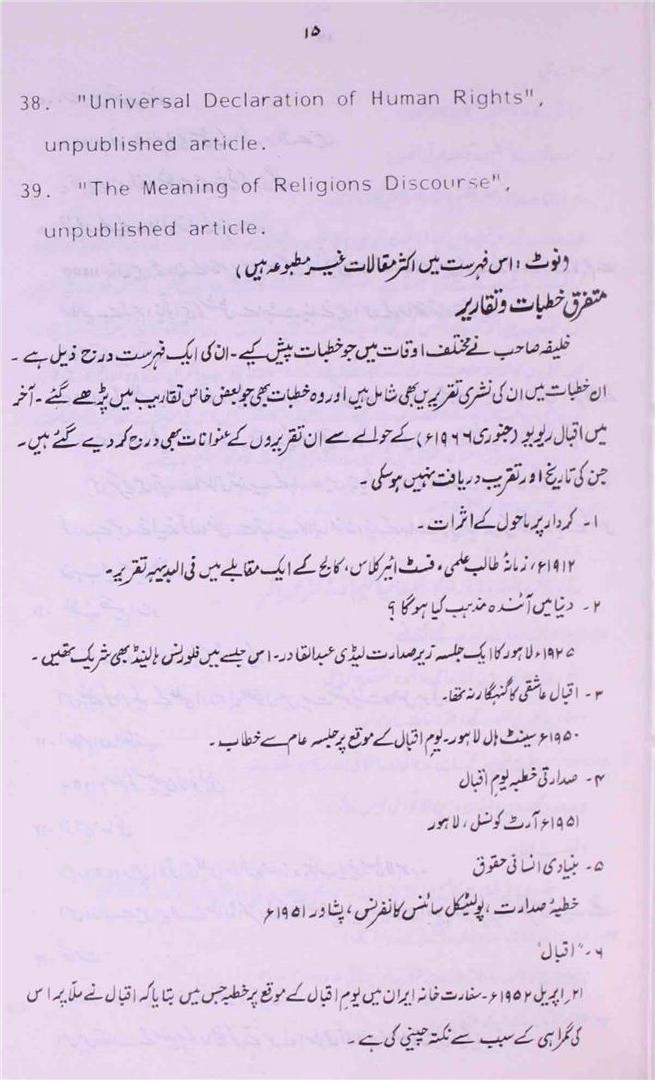 ۱۵
38. "Universal Declaration of Human Rights",
unpublished article.
39. "The Meaning of Religions Discourse",
unpublished article.
(نوٹ : اس فہرست میں اکثر مقالات غیر مطبوعہ ہیں)
متفرق خطبات و تقاریر
خلیفہ صاحب نے مختلف اوقات میں جو خطبات پیش کیے۔ ان کی ایک فہرست درج ذیل ہے ۔
ان خطبات میں ان کی نشری تقریریں بھی شامل ہیں اور وہ خطبات بھی جو بعض خاص تقاریب میں پڑھے گئے ۔ آخر
میں اقبال ریویو (جنوری ۱۹۶۶ء) کے حوالے سے ان تقریروں کے عنوانات بھی درج کر دیے گئے ہیں۔
جن کی تاریخ اور تقریب دریافت نہیں ہو سکی ۔
۱۔ کردار پر ماحول کے اثرات ۔
۱۹۱۲ء، زمانۂ طالب علمی، فسٹ ائیر کلاس، کالج کے ایک مقابلے میں فی البدیہہ تقریر۔
۲۔ دنیا میں آئندہ مذہب کیا ہو گا ؟
۱۹۲۵ء لاہور کا ایک جلسہ زیر صدارت لیڈی عبدالقادر۔ اس جلسے میں فلورنس ہالینڈ بھی شریک تھیں ۔
۳۔ اقبال عاشقی کا گنہگار نہ تھا۔
۱۹۵۰ء سینٹ ہال لاہور۔ یوم اقبال کے موقع پر جلسہ عام سے خطاب ۔
۴۔ صدارتی خطبہ یوم اقبال
۱۹۵۱ء آرٹ کونسل، لاہور
۵۔ بنیادی انسانی حقوق
خطبۂ صدارت، پولیٹیکل سائنس کانفرنس، پشاور ۱۹۵۱ء
۶۔ "اقبال"
۲۱؍اپریل ۱۹۵۲ء۔ سفارت خانہ ایران میں یوم اقبال کے موقع پر خطبہ جس میں بتایا کہ اقبال نے ملّا پر اس
کی گمراہی کے سبب سے نکتہ چینی کی ہے ۔